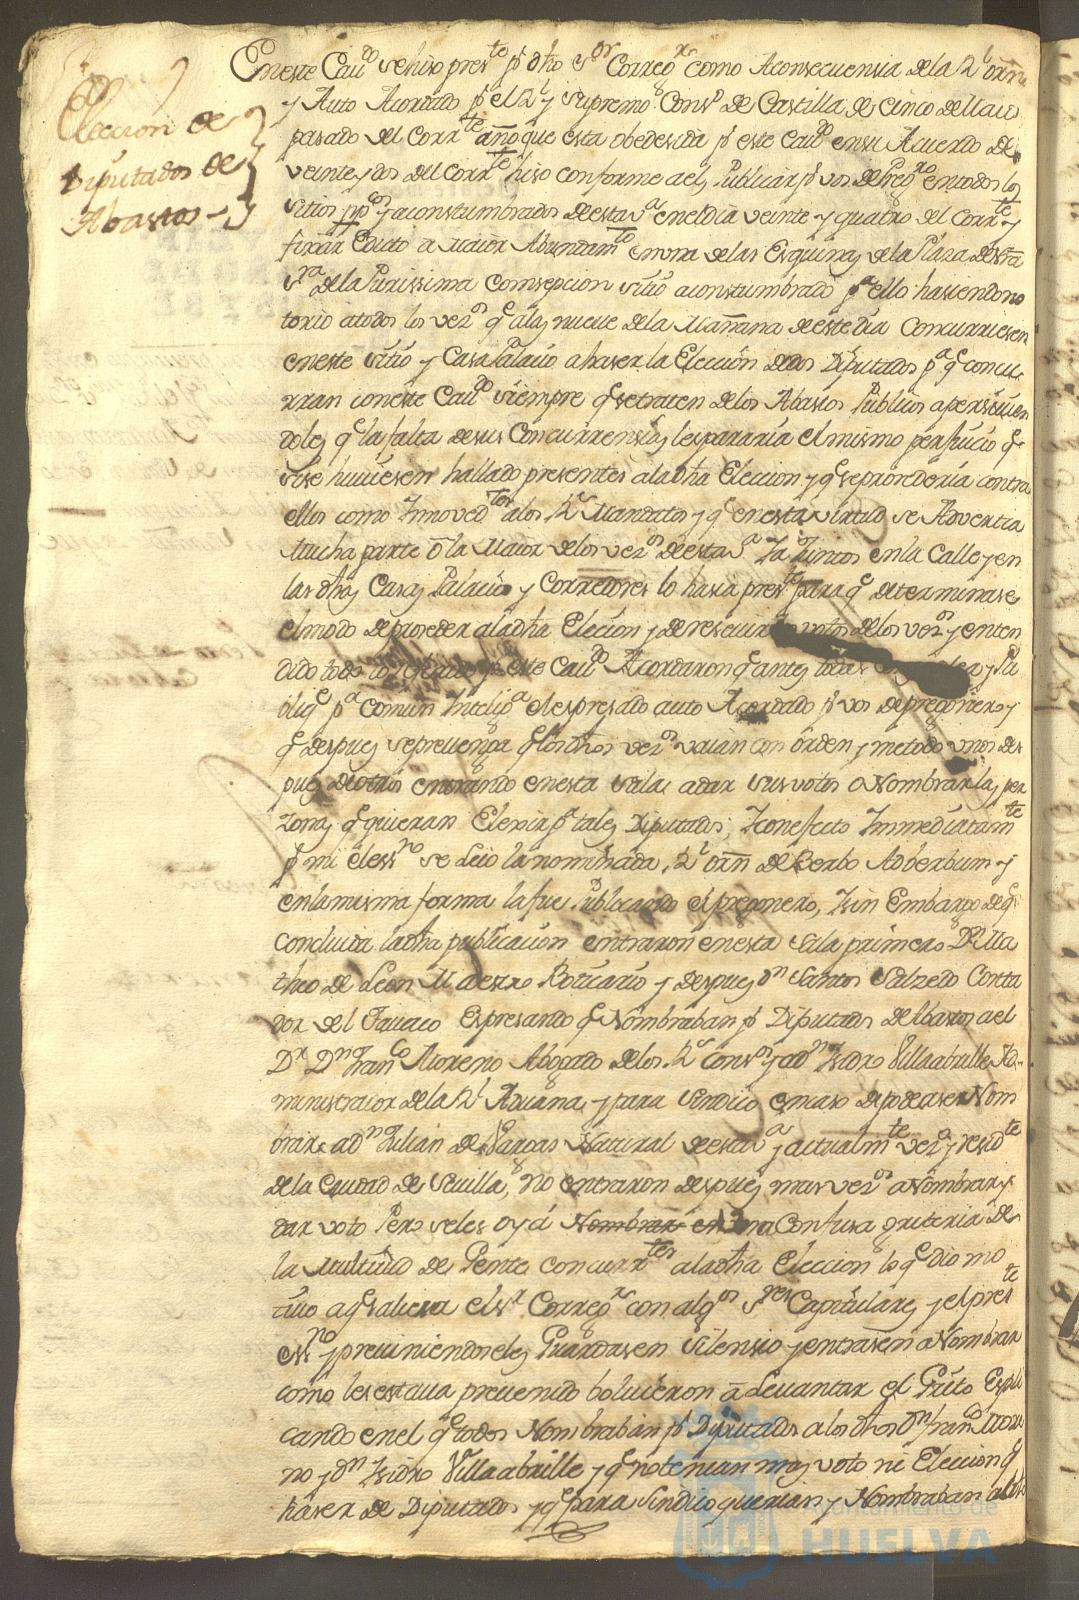 Eleccion de
Diputados de
Abastos
En este Cavdo se hiso preste pr dho Sor Corregr como Aconsecuensia de la Rl orñ
y Auto Acordado pr el Rl y Supremo Consº de Castilla de Cinco de Maio
pasado del Corrte año que esta obedesida pr este Cavdo en su Acuerdo de
veinte y dos del Corrte hiso conforme a el, Publicar pr vos de Pregro en todos los
sitios ppcos y acostumbrados de esta Va en el dia veinte y quatro del Corrte y
fixar Edicto a maior Abundamto en una de las Esquinas de la Plaza de Nra
Sra de la Purissima Comsepcion sitio acostumbrado pa ello hasiendo no
torio a todos los vezos qe a las nueve de la Mañana de este dia Concurriesen
en este sitio y Casa Palacio a haser la Eleccion de dos Diputados pa qe concu
rran con este Cavdo siempre qe se traten de los Abastos Publicos apersivien
doles qe la falta de sus Concurrensias les pararia el mismo perjuicio qe
si se huviesen hallado presentes a la dha Eleccion y qe se prosederia contra
ellos como Innovedtes a los Rs Mandatos y qe en esta virtud se Advertia
Mucha parte ô la Maior de los vezos de esta Va Ya Juntos en la Calle y en
las dhas Casas Palacio y Corredores lo hasia preste para qe determinase
el modo de proseder a la dha Eleccion y de resevir votos de los vezos y enten
dido todo este Cavdo Acordaron qe antes todas y Pu
bliqe pa comun Inteliga el expresado auto Acordado pr vos de pregonero y
qe despues se prevenga qe los dhos vezos vaian con orden y metodo unos des
pues de otros entrando en esta sala a dar sus votos o Nombrar las per
zonas qe quieran Elexir pr tales Diputados; Y con efecto Immediatamte
pr mi el essno se leio la nominada Rl orñ de Berbo Adberbum y
en la misma forma la fue Publicando el pregonero, Y sin Embargo de qe
concluida la dha publicacion entraron en esta sala primero Dn Ma
theo de Leon Maestro Boticario y despues Dn Santos Salzedo Conta
dor del Tavaco Expresando qe Nombraban pr Diputados de Abastos a el
Dr Dn Franco Moreno Abogado de los Rs Consos y a Dn Ysidro Villaabrille Ad
ministrator de la Rl Aduana, y para Sindico en caso de poderse Nom
brar, a Dn Julian de Vargas Natural de esta Va y actualmte vezo y residte
de la Ciudad de Sevilla, No entraron despues mas vezos a Nombrar y
dar voto Pero se les oya Nombrar en una Confusa griteria de
la Multitud de Jente concurrtes a la dha Eleccion lo qe dio mo
tivo a qe saliera el Sr Corregr con algos Sres Capitulares y el preste
essno y previniendoles Guardasen silensio y entrasen a Nombrar
como les estava prevenido bolvieron a Levantar el Grito Expli
cando en el qe todos Nombraban pr Diputados a los dhos Dn Franco More
no y Dn Ysidro Villaabrille y qe no tenian mas voto ni Eleccion qe
haser de Diputados y qe para Sindico querian y Nombraban al dho
Ayuntamiento de
HUELVA